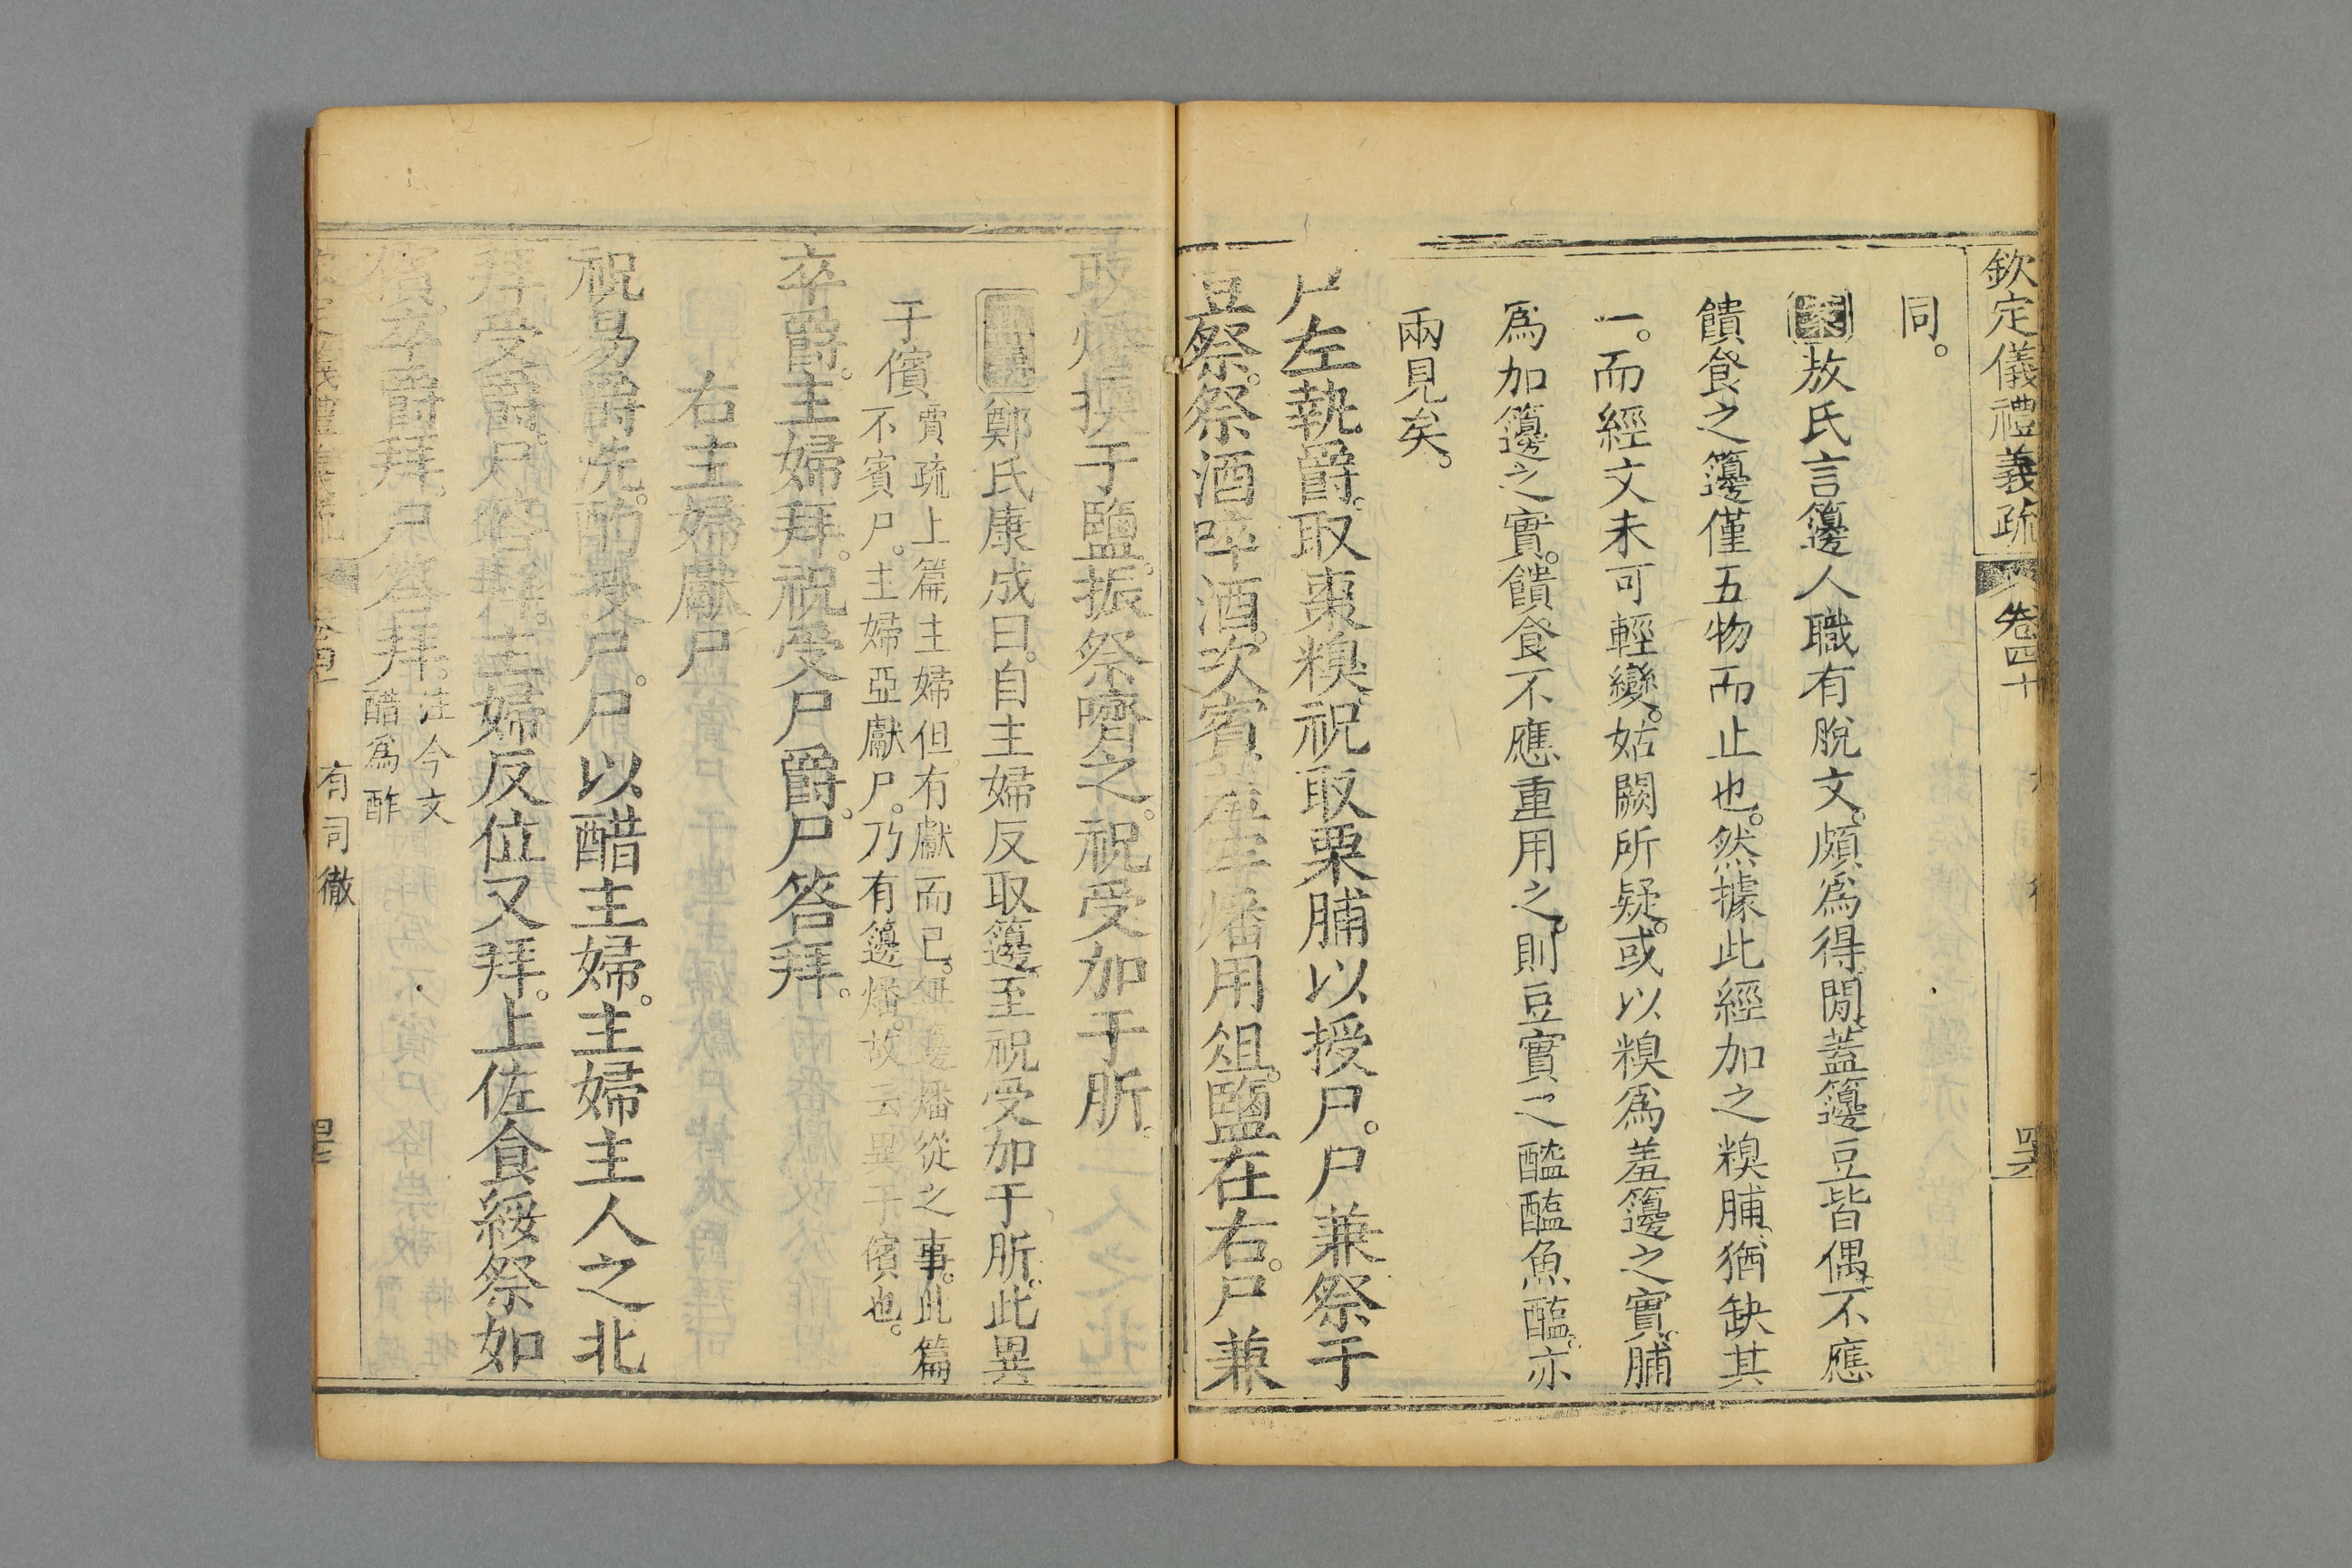 欽定儀禮義疏 卷四十 四六
同。
案敖氏言籩人職有脫文。頗為得閒。蓋籩豆皆偶。不應
饋食之籩僅五物而止也。然據此經加之糗脯、猶缺其
一。而經文未可輕變。姑闕所疑。或以糗為羞籩之實。脯
為加籩之實。饋食不應重用之。則豆實之醓醢魚醢。亦
兩見矣。
尸左執爵。取棗糗。祝取栗脯以授尸。尸兼祭于
豆祭。祭酒啐酒。次賓羞牢燔用俎。鹽在右。尸兼
取燔擩于鹽。振祭嚌之。祝受加于肵。
鄭氏康成曰。自主婦反取籩、至祝受加于肵。此異
于儐 賈疏上篇、主婦但有獻而已。無籩燔從之事。此篇
不賓尸。主婦亞獻尸。乃有籩燔。故云異于儐也。
卒爵。主婦拜。祝受尸爵。尸答拜。
右主婦獻尸
祝易爵洗。酌授尸。尸以醋主婦。主婦主人之北
拜受爵。尸答拜。主婦反位又拜。上佐食綏祭如
儐。卒爵拜。尸答拜。注今文
醋為酢
欽定儀禮義疏 卷四十 有司徹